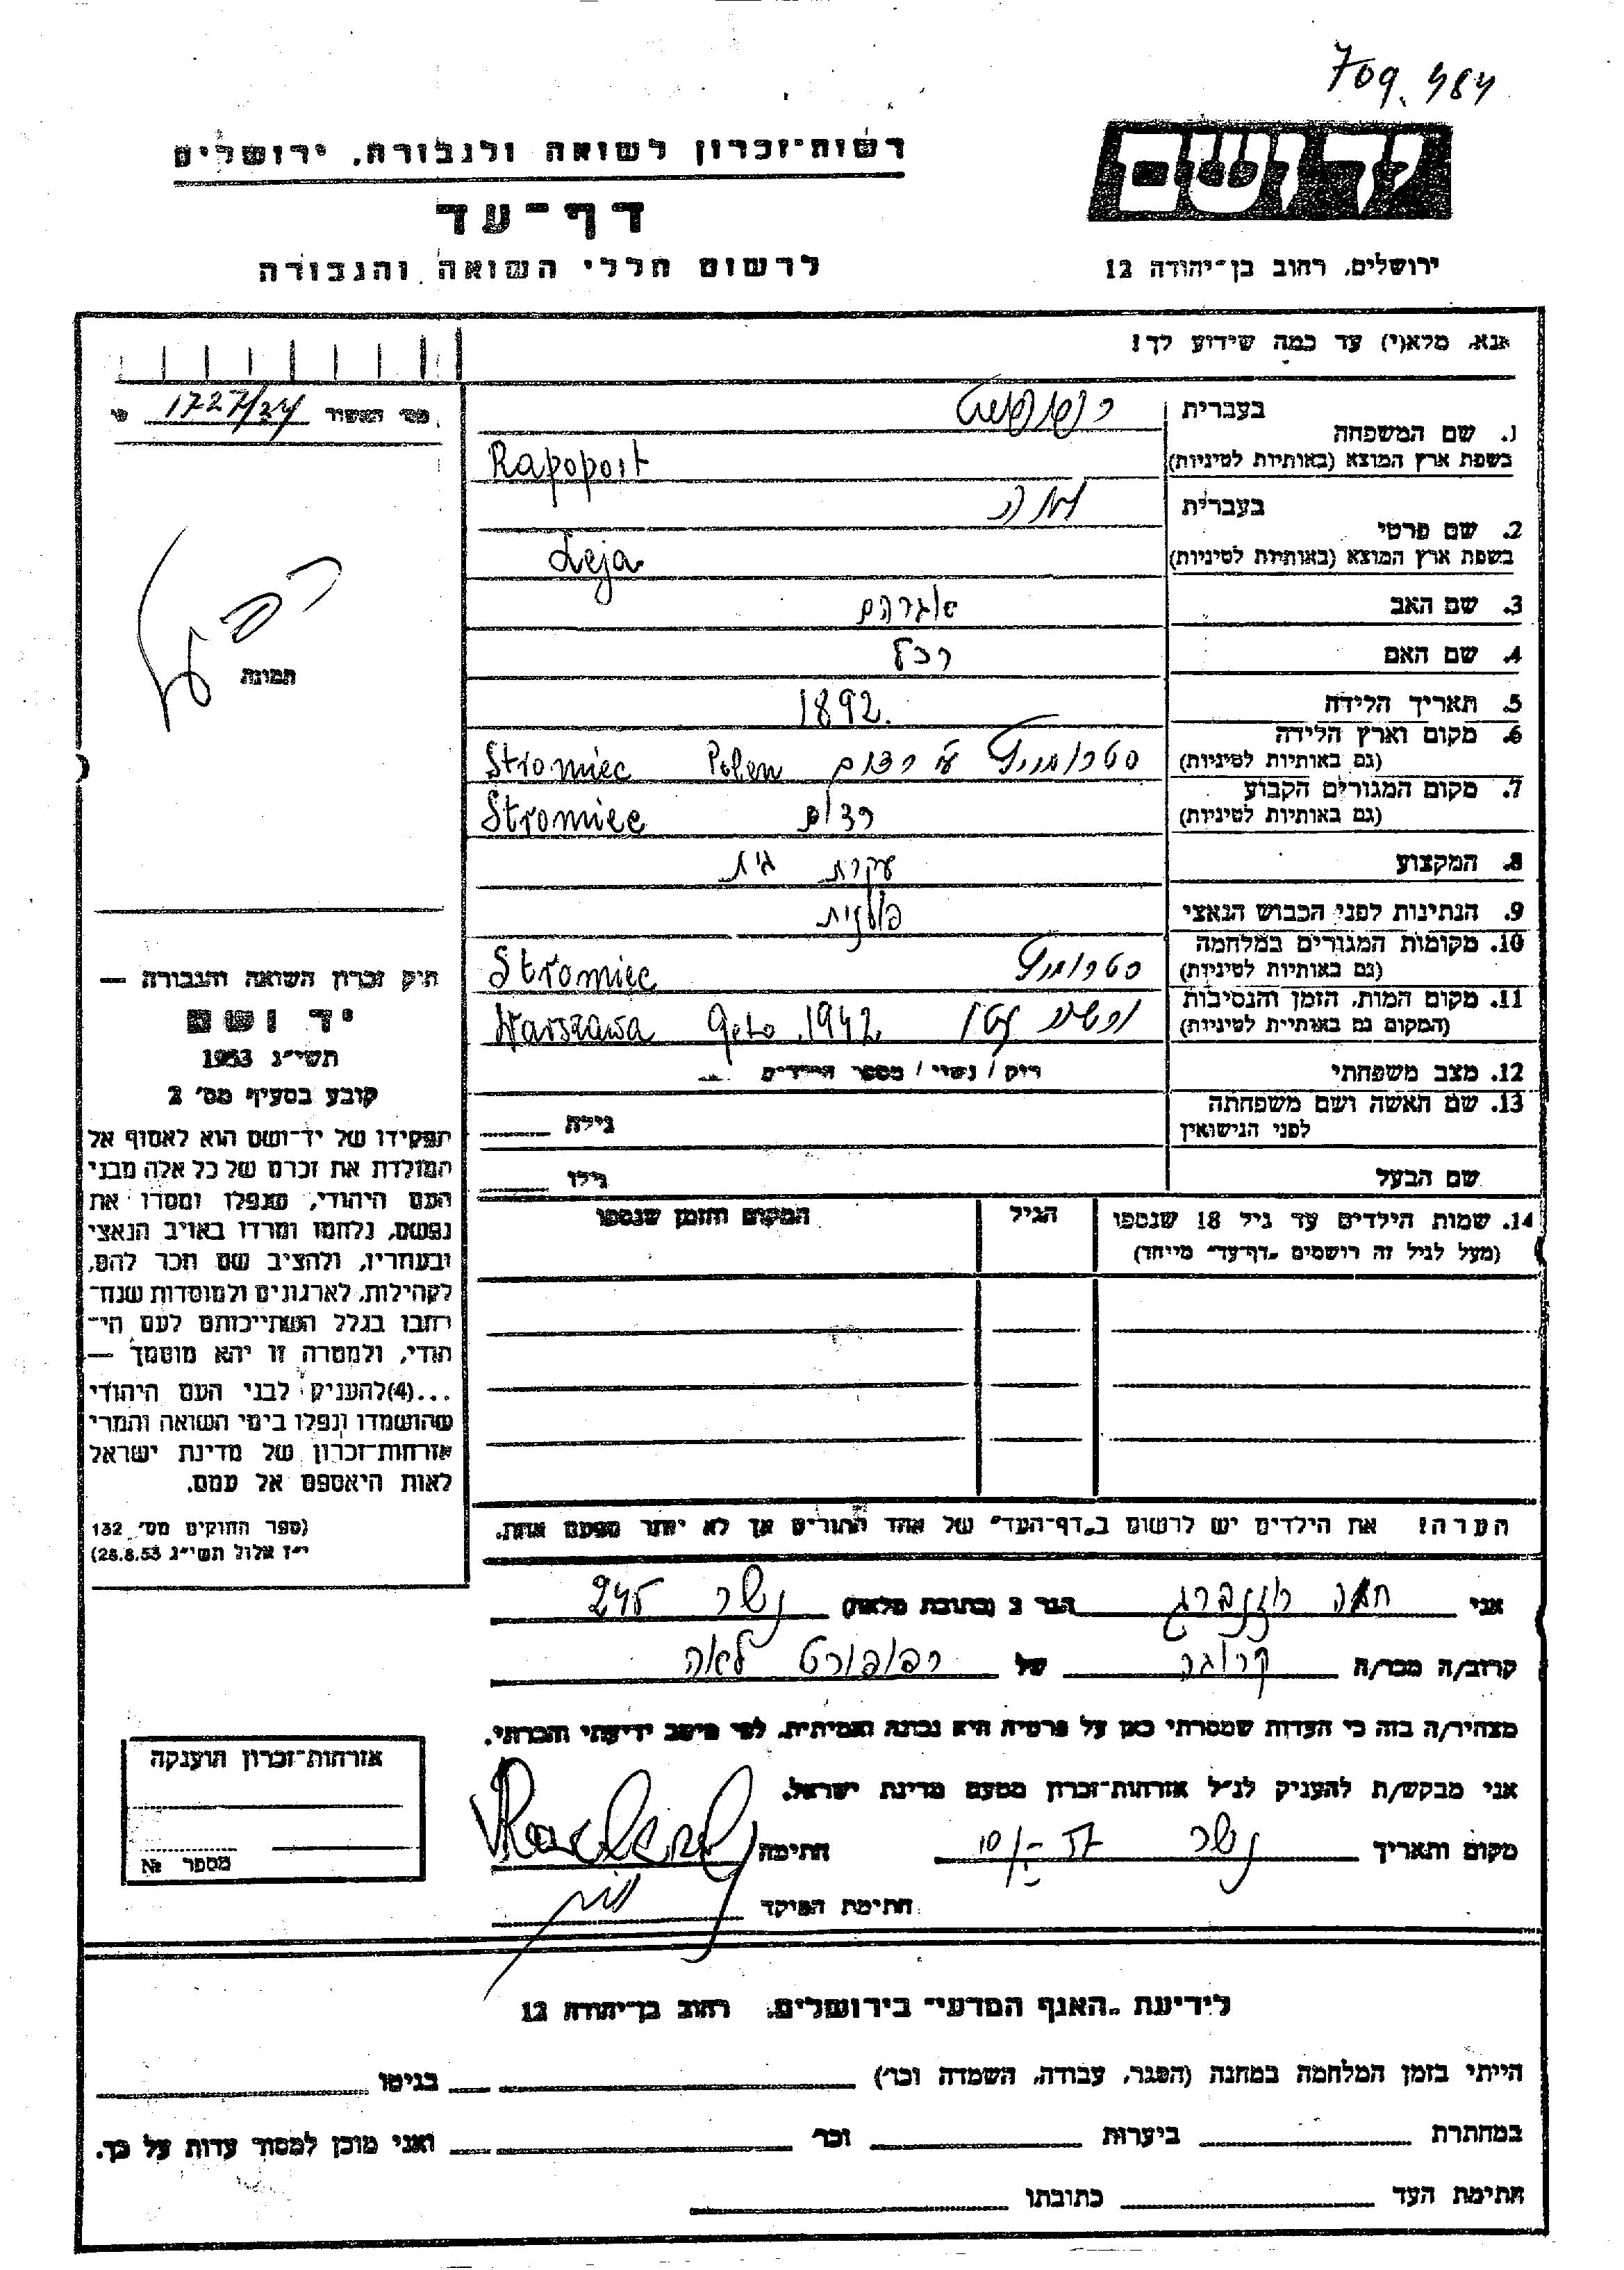 709.484
רשות-זכרון לשואה ולגבורה, ירושלים
דף-עד
לרשום חללי השואה והגבורה
יד ושם
ירושלים, רחוב בן-יהודה 12
אנא, מלא(י) עד כמה שידוע לך!
מס' האשור 1727/24
1. שם המשפחה בעברית רפופורט
בשפת ארץ המוצא (באותיות לטיניות) Rapoport
2. שם פרטי בעברית לאה
בשפת ארץ המוצא (באותיות לטיניות) Leja
3. שם האב אברהם
4. שם האם רחל
5. תאריך הלידה 1892.
6. מקום וארץ הלידה (גם באותיות לטיניות) סטרומיץ ע"י רדום Stromiec Polen
7. מקום המגורים הקבוע (גם באותיות לטיניות) רדום Stromiec
8. המקצוע עקרת בית
9. הנתינות לפני הכבוש הנאצי פולנית
10. מקומות המגורים במלחמה (גם באותיות לטיניות) סטרומיץ Stromiec
11. מקום המות, הזמן והנסיבות (המקום גם באותיות לטיניות) ורשה גטו Warszawa Geto 1942.
12. מצב משפחתי רוק / נשוי / מספר הילדים
13. שם האשה ושם משפחתה לפני הנישואין גילה
שם הבעל גילו
14. שמות הילדים עד גיל 18 שנספו הגיל המקום והזמן שנספו
(מעל לגיל זה רושמים "דף-עד" מיוחד)
הערה! את הילדים יש לרשום ב"דף-העד" של אחד ההורים אך לא יותר מפעם אחת.
תמונה
חיק זכרון השואה והגבורה —
יד ושם
תשי"ג 1953
קובע בסעיף מס' 2
תפקידו של יד-ושם הוא לאסוף אל
המולדת את זכרם של כל אלה מבני
העם היהודי, שנפלו ומסרו את
נפשם, נלחמו ומרדו באויב הנאצי
ובעוזריו, ולהציב שם וזכר להם,
לקהילות, לארגונים ולמוסדות שנח-
רבו בגלל השתייכותם לעם הי-
הודי, ולמטרה זו יהא מוסמך —
...(4)להעניק לבני העם היהודי
שהושמדו ונפלו בימי השואה והמרי
אזרחות-זכרון של מדינת ישראל
לאות היאספם אל עמם.
(ספר החוקים מס' 132
י"ז אלול תשי"ג 28.8.53)
אני חנה רוזנברג הגר ב (כתובת מלאה) נשר 245
קרוב/ה מכר/ה קרובה של רפופורט לאה
מצהיר/ה בזה כי העדות שמסרתי כאן על פרטיה היא נכונה ואמיתית, לפי מיטב ידיעתי והכרתי.
אני מבקש/ת להעניק לנ"ל אזרחות-זכרון מטעם מדינת ישראל.
מקום ותאריך נשר חתימה
חתימת הפוקד
אזרחות-זכרון הוענקה
מספר №
לידיעת "האגף המדעי" בירושלים, רחוב בן-יהודה 12
הייתי בזמן המלחמה במחנה (הסגר, עבודה, השמדה וכו') בגיטו
במחתרת ביערות וכו' ואני מוכן למסור עדות על כך.
חתימת העד כתובתו